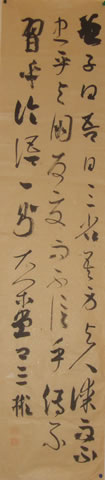 曾子曰吾日三省吾身為人謀而不
忠乎與朋友交而不信乎傳不
習乎論語一節